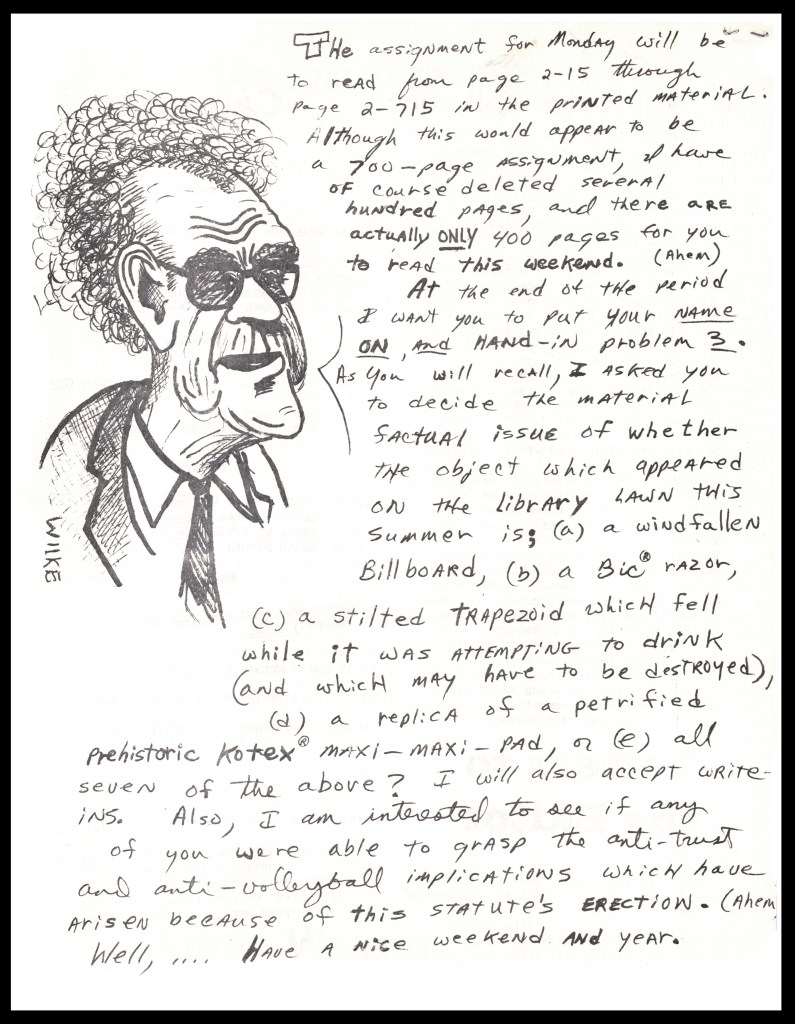 The assignment for Monday will be
to read from page 2-15 through
page 2-715 in the printed material.
Although this would appear to be
a 700-page assignment, I have
of course deleted several
hundred pages, and there are
actually ONLY 400 pages for you
to read this weekend. (Ahem)
At the end of the period
I want you to put your NAME
ON, AND HAND-IN problem 3.
As you will recall, I asked you
to decide the material
factual issue of whether
the object which appeared
on the library lawn this
summer is; (a) a windfallen
Billboard, (b) a Bic® razor,
(c) a stilted trapezoid which fell
while it was attempting to drink
(and which may have to be destroyed),
(d) a replica of a petrified
prehistoric Kotex® maxi-maxi-pad, or (e) all
seven of the above? I will also accept write-
ins. Also, I am interested to see if any
of you were able to grasp the anti-trust
and anti-volleyball implications which have
arisen because of this statute's ERECTION. (Ahem
Well, .... Have a nice weekend and year.
WILKE